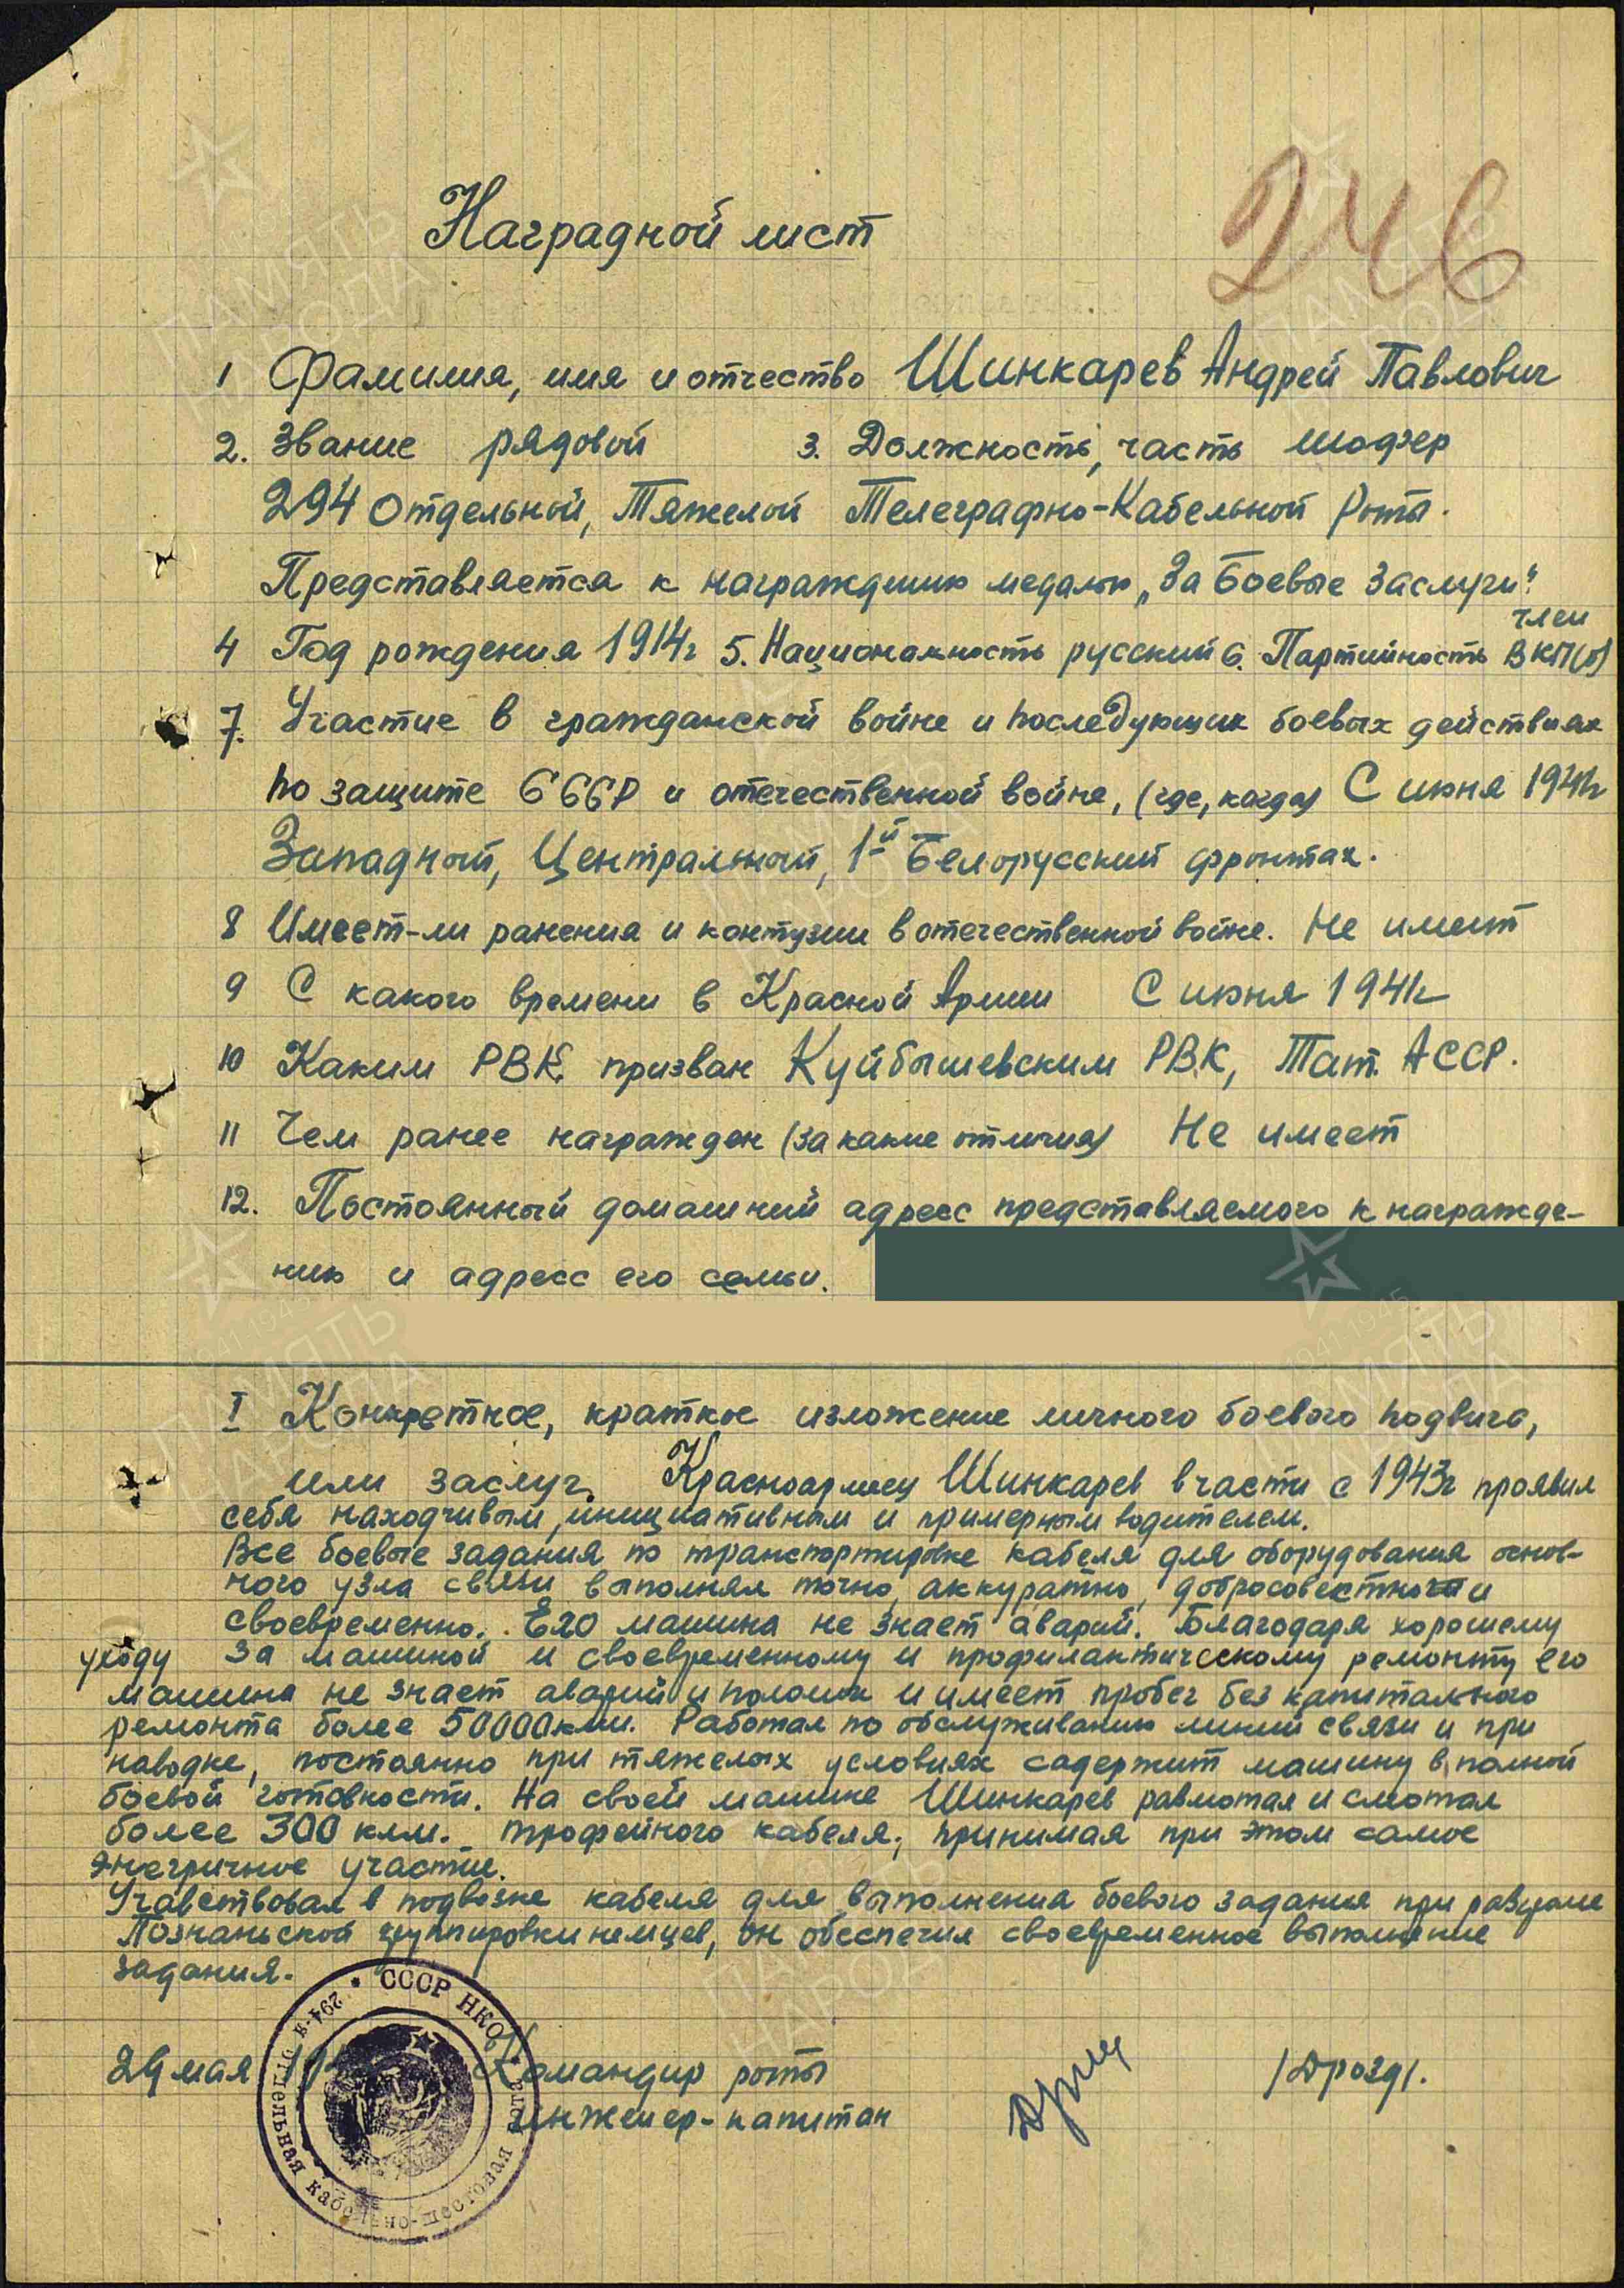 246
Наградной лист
1 Фамилия, имя и отчество Шинкарев Андрей Павлович
2. Звание рядовой 3. Должность, часть шофер
294 Отдельной, Тяжелой Телеграфно-Кабельной Рота.
Представляется к награждению медалью „За Боевые Заслуги".
член
4 Год рождения 1914г 5. Национальность русский 6. Партийность ВКП(б)
7. Участие в гражданской войне и последующих боевых действиях
по защите СССР и отечественной войне, (где, когда) С июня 1941г
Западный, Центральный, 1й Белорусский фронтах.
8 Имеет-ли ранения и контузии в отечественной войне. Не имеет
9 С какого времени в Красной Армии С июня 1941г
10 Каким РВК призван Куйбышевским РВК, Тат. АССР.
11 Чем ранее награжден (за какие отличия) Не имеет
12. Постоянный домашний адрес представляемого к награжде-
нию и адрес его семьи.
I Конкретное, краткое изложение личного боевого подвига,
или заслуг. Красноармеец Шинкарев в части с 1943г проявил
себя находчивым, инициативным и примерным водителем.
Все боевые задания по транспортировке кабеля для оборудования основ-
ного узла связи выполнял точно, аккуратно, добросовестно и
своевременно. Его машина не знает аварий. Благодаря хорошему
уходу за машиной и своевременному и профилактическому ремонту его
машина не знает аварий и поломок и имеет пробег без капитального
ремонта более 50000 клм. Работал по обслуживанию линий связи и при
наводке, постоянно при тяжелых условиях содержит машину в полной
боевой готовности. На своей машине Шинкарев размотал и смотал
более 300 клм. трофейного кабеля, принимая при этом самое
энегричное участие.
Учавствовал в подвозке кабеля для выполнения боевого задания при разгроме
Познаньской группировки немцев, он обеспечил своевременное выполнение
задания.
29 мая Командир роты
инженер-капитан /Дрозд/.
СССР НКО
294-я отдельная кабельно-шестовая рота
ПАМЯТЬ НАРОДА
1941-1945